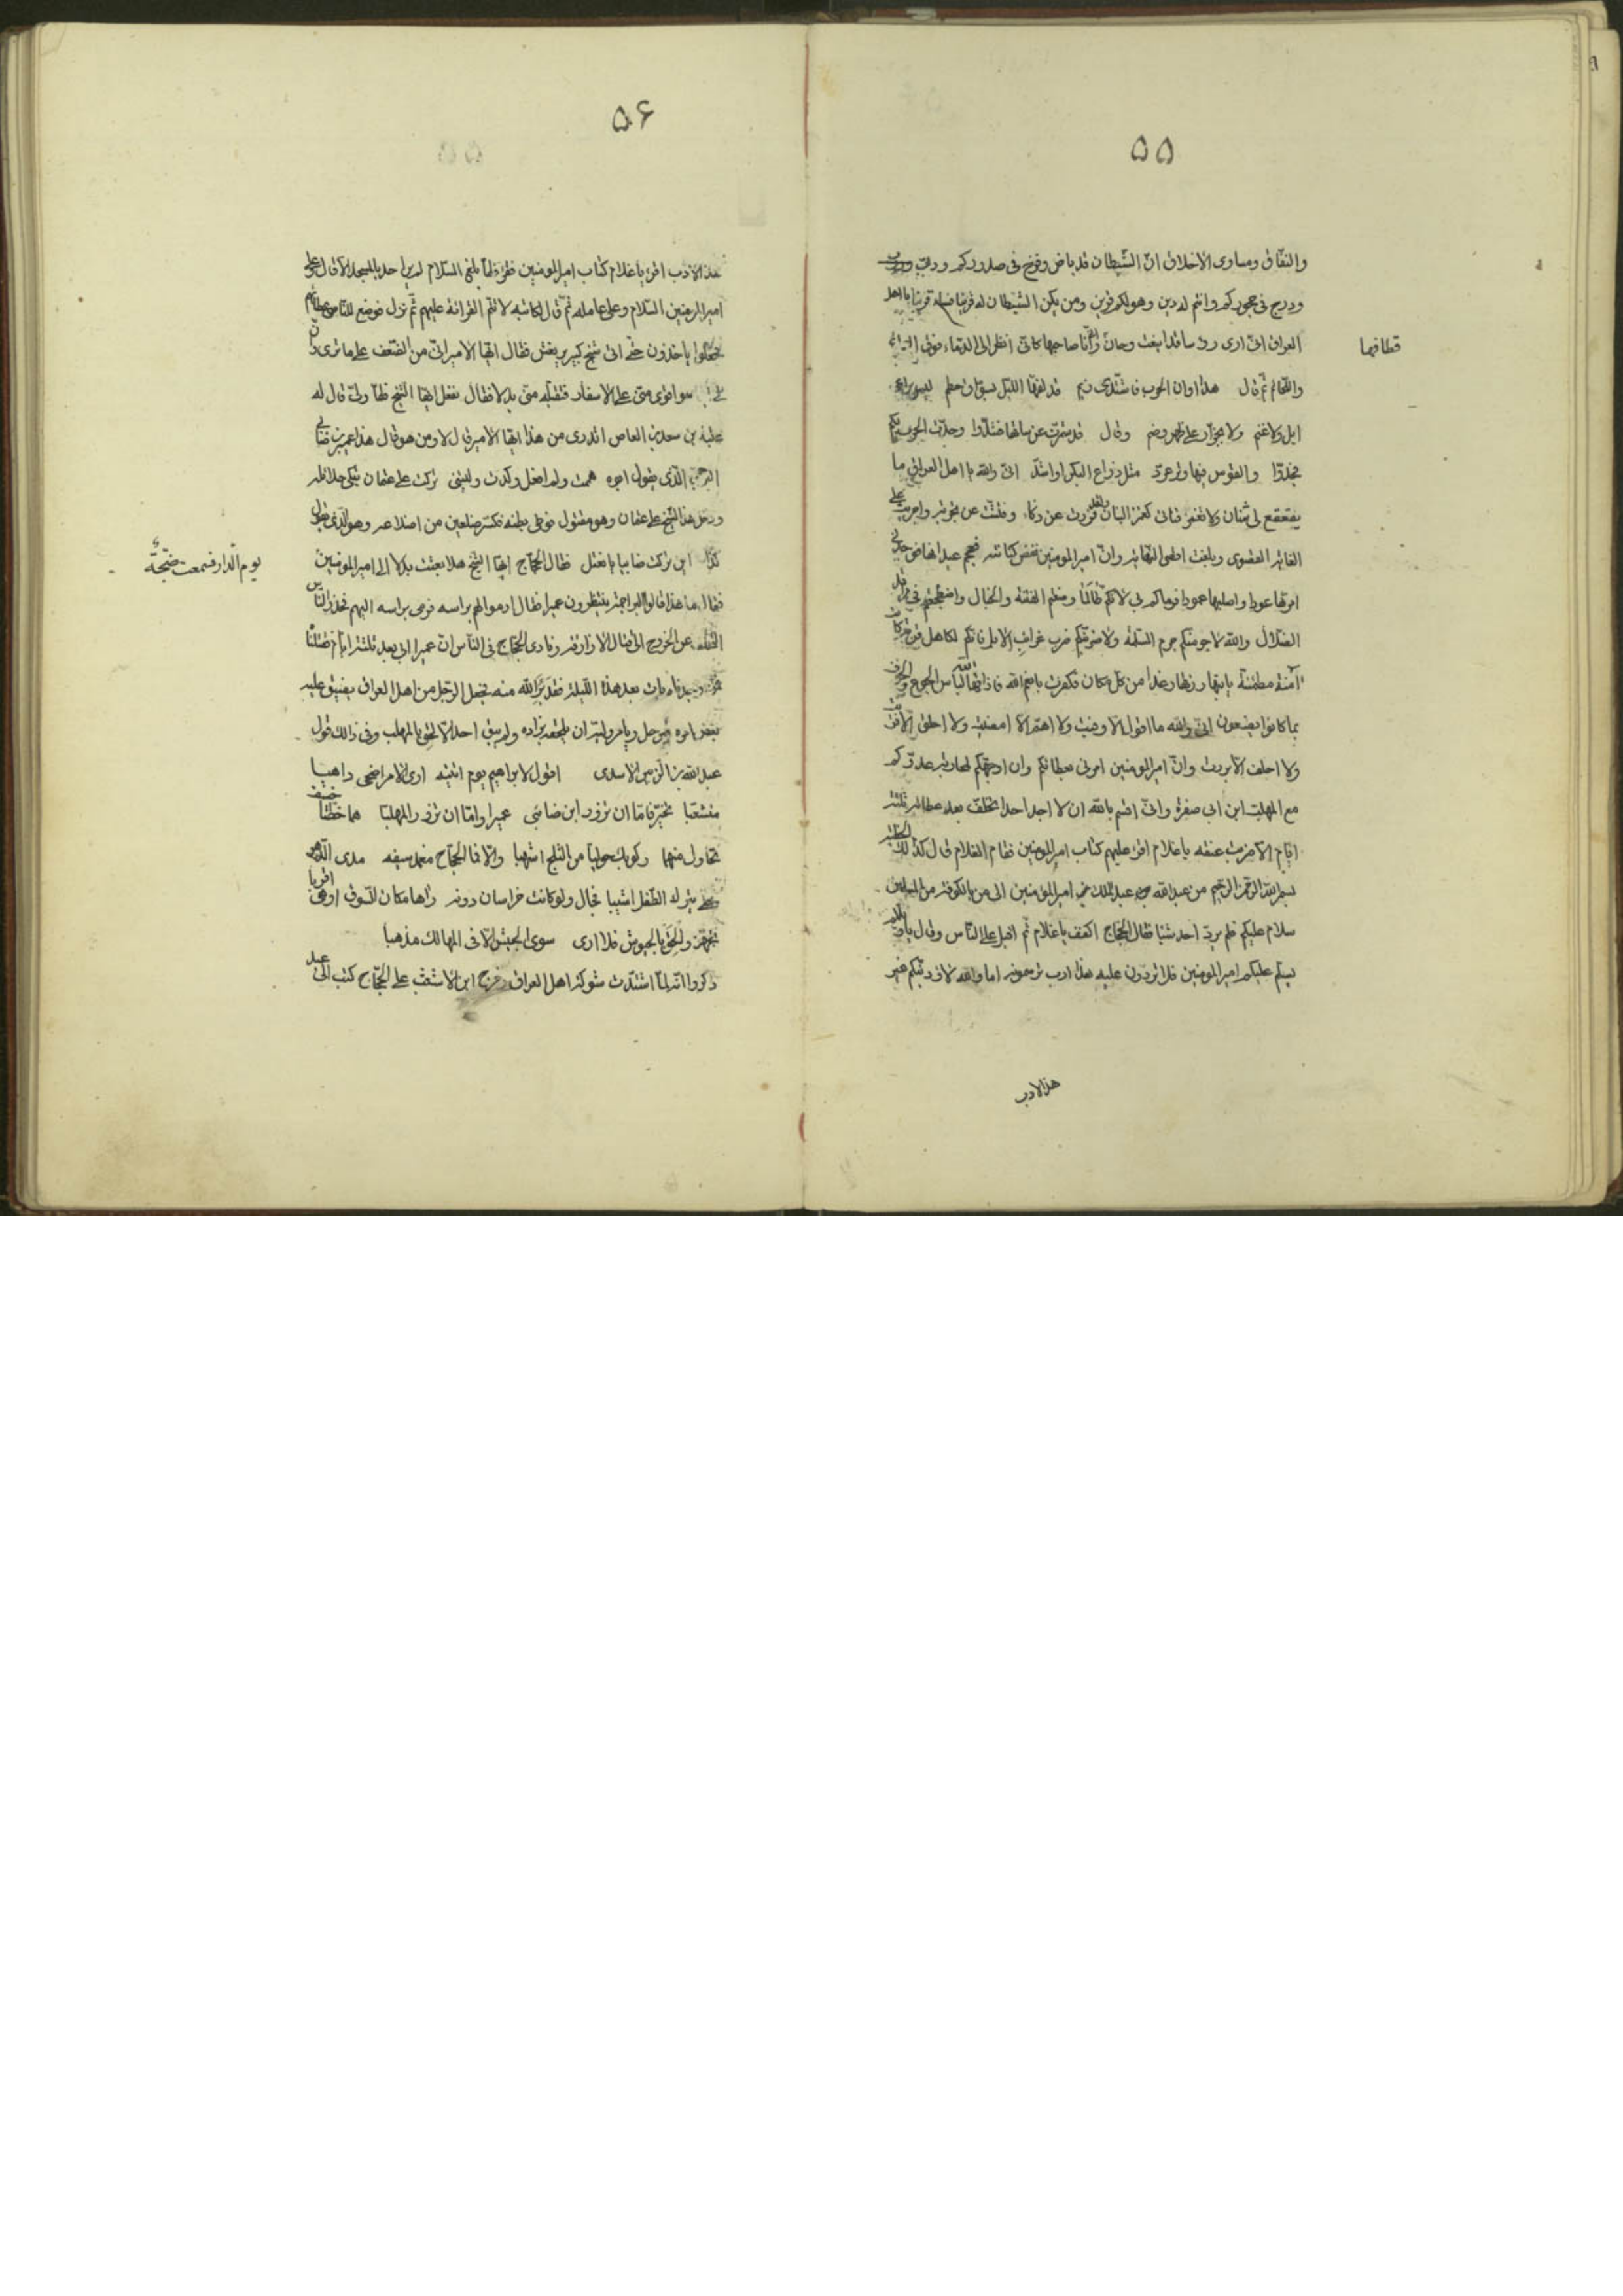 ٥٥
والنفاق ومساوى الاخلاق انّ الشّيطان قد باض وفرخ فى صدوركم ودبّ
ودرج فى حجوركم وانتم له دين وهو لكم قرين ومن يكن الشّيطان له قرينا فساء قرينا يا اهل
العراق انّى ارى روسا قد اينعت وحان وانّا صاحبها كانّى انظر الى الدّماء فوق
قطافها
ثم قال هذا اوان الحرب فاشتدّى زيم قد لفّها اللّيل بسوّاق حطم ليس براعى
ابل ولا غنم ولا بجزّار على ظهر وضم وقال قد شمّرت عن ساقها فشدّوا وجدّت الحرب بكم
فجدّوا والقوس فيها وتر عردّ مثل ذراع البكر او اشدّ انّى والله يا اهل العراق ما
يقعقع لى بشنان ولا تغمز كغمز التان ولقد فررت عن ذكاء وفتّشت عن تجربة واجريت
الغاية القصوى وانّ امير المومنين نفض كنانته فعجم عيدانها
امرّها عودا واصلبها عمودا فرماكم بى لانّكم طالما الفتنه واضطجعتم فى مراقد
الضّلال والله لاحزمنّكم حزم السّلمة ولاضربنّكم ضرب غرائب الابل فانّكم لكاهل قرية كانت
آمنة مطمئنّة ياتيها رزقها رغدا من كلّ مكان فكفرت بانعم الله فاذاقها الله لباس الجوع والخوف
بما كانوا يصنعون انّى والله ما اقول الّا وفيت ولا اهمّ الّا امضيت ولا اخلق الّا فريت
ولا احلف الّا بررت وانّ امير المومنين امرنى بعطائكم وان اوجّهكم لمحاربة عدوّكم
مع المهلب ابن ابى صفرة وانّى اقسم بالله ان لا اجد احدا تخلّف بعد عطائه ثلثة
ايّام الّا ضربت عنقه يا غلام اقرء عليهم كتاب امير المومنين فقام الغلام
بسم الله الرّحمن الرّحيم من عبد الله عبد الملك امير المومنين الى من بالكوفة من المسلمين
سلام عليكم فلم يردّ احد شيئا فقال الحجّاج اكفف يا غلام ثم اقبل على النّاس وقال
يسلّم عليكم امير المومنين فلا تردّون عليه هذا ادب اما والله لاؤدّبنّكم غير
هذا الادب
٥۶
هذا الادب اقرء يا غلام كتاب امير المومنين فقرء فلمّا بلغ السّلام لم يبق احد بالمسجد الّا قال وعلى
امير المومنين السّلام ثم نزل فوضع للنّاس عطائهم
فجعلوا ياخذون حتّى اتى شيخ كبير يرعش فقال ايّها الامير انّى من الضّعف على ما ترى
ولى ابن هو اقوى منّى على الاسفار فتقبله منّى بدلا فقال نفعل ايّها الشّيخ فلمّا ولّى قال له
بن سعد بن العاص اتدرى من هذا ايّها الامير قال لا ومن هو قال هذا عمير بن ضابى
البرجمى الّذى يقول ابوه هممت ولم افعل وكدت وليتنى تركت على عثمان تبكى حلائله
ودخل هذا الشّيخ على عثمان وهو مقتول فوطى بطنه فكسر ضلعين من اضلاعه وهو الّذى يقول
اين تركت ضابيا يا نعثل فقال الحجّاج ايّها الشّيخ هلا بعثت بدلا الى امير المومنين
يوم الدّار فسمعت ضجّة
فقال ما هذا قالوا البراجم ينتظرون عميرا فقال ارموا لهم براسه فرمى براسه اليهم فحذر النّاس
التخلّف عن الخروج الى قتال الازارقة ونادى الحجّاج فى النّاس انّ عميرا اتى بعد ثلثة ايّام فقتلنا
بات بعد هذه اللّيلة فقد برئ الله منه فجعل الرّجل من اهل العراق يضيق عليه
امره فيرحل ويامر وليّه ان يلحقه بزاده ولم يبق احد الّا لحق بالمهلب وفى ذالك قول
عبد الله بن الزّبير الاسدى اقول لابراهيم يوم لقيته ارى الامر اضحى داهيا
منشعبا تخيّر فامّا ان تزور ابن ضابى عميرا وامّا ان تزور المهلبا هما خطّتا خسف
نجاؤك منهما ركوبك حوليا من الثّلج اشهبا والّا فما الحجّاج مغمد سيفه مدى الدّهر
حتّى يترك الطّفل اشيبا فحال ولو كانت خراسان دونه راها مكان السّوق او هى اقربا
تجهّز والحق بالجيوش فلا ارى سوى الجيش الّا فى المهالك مذهبا
ذكروا انّه لمّا اشتدّت شوكة اهل العراق وخرج ابن الاشعث على الحجّاج كتب الى عبد